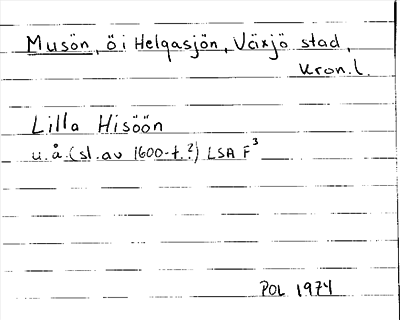 Musön, ö i Helgasjön, Växjö stad,
Kron.l.
Lilla Hisöön
u.å. (sl. av 1600-t.?) LSA F³
POL 1974